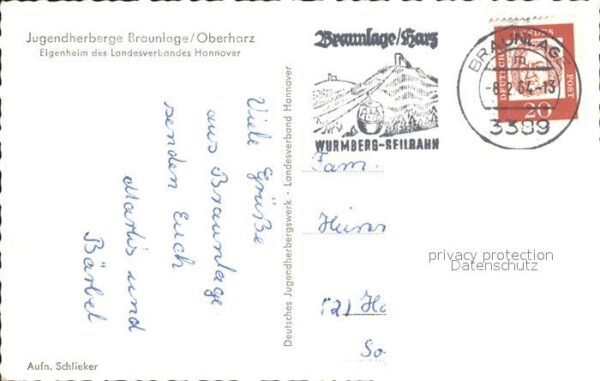 Jugendherberge Braunlage/Oberharz
Eigenheim des Landesverbandes Hannover
Viele Grüße
aus Braunlage
senden Euch
und
Bärbel
Deutsches Jugendherbergswerk · Landesverband Hannover
Aufn. Schlieker
Braunlage/Harz
WURMBERG-SEILBAHN
BRAUNLAGE
-8.2.64-13
3389
DEUTSCHE BUNDESPOST
20
Fam.
Heinr
So
privacy protection
Datenschutz